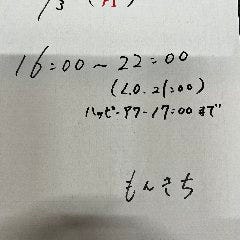 1/3 (月)
16:00〜22:00
(L.O. 21:00)
ハッピーアワー17:00まで
もんきち